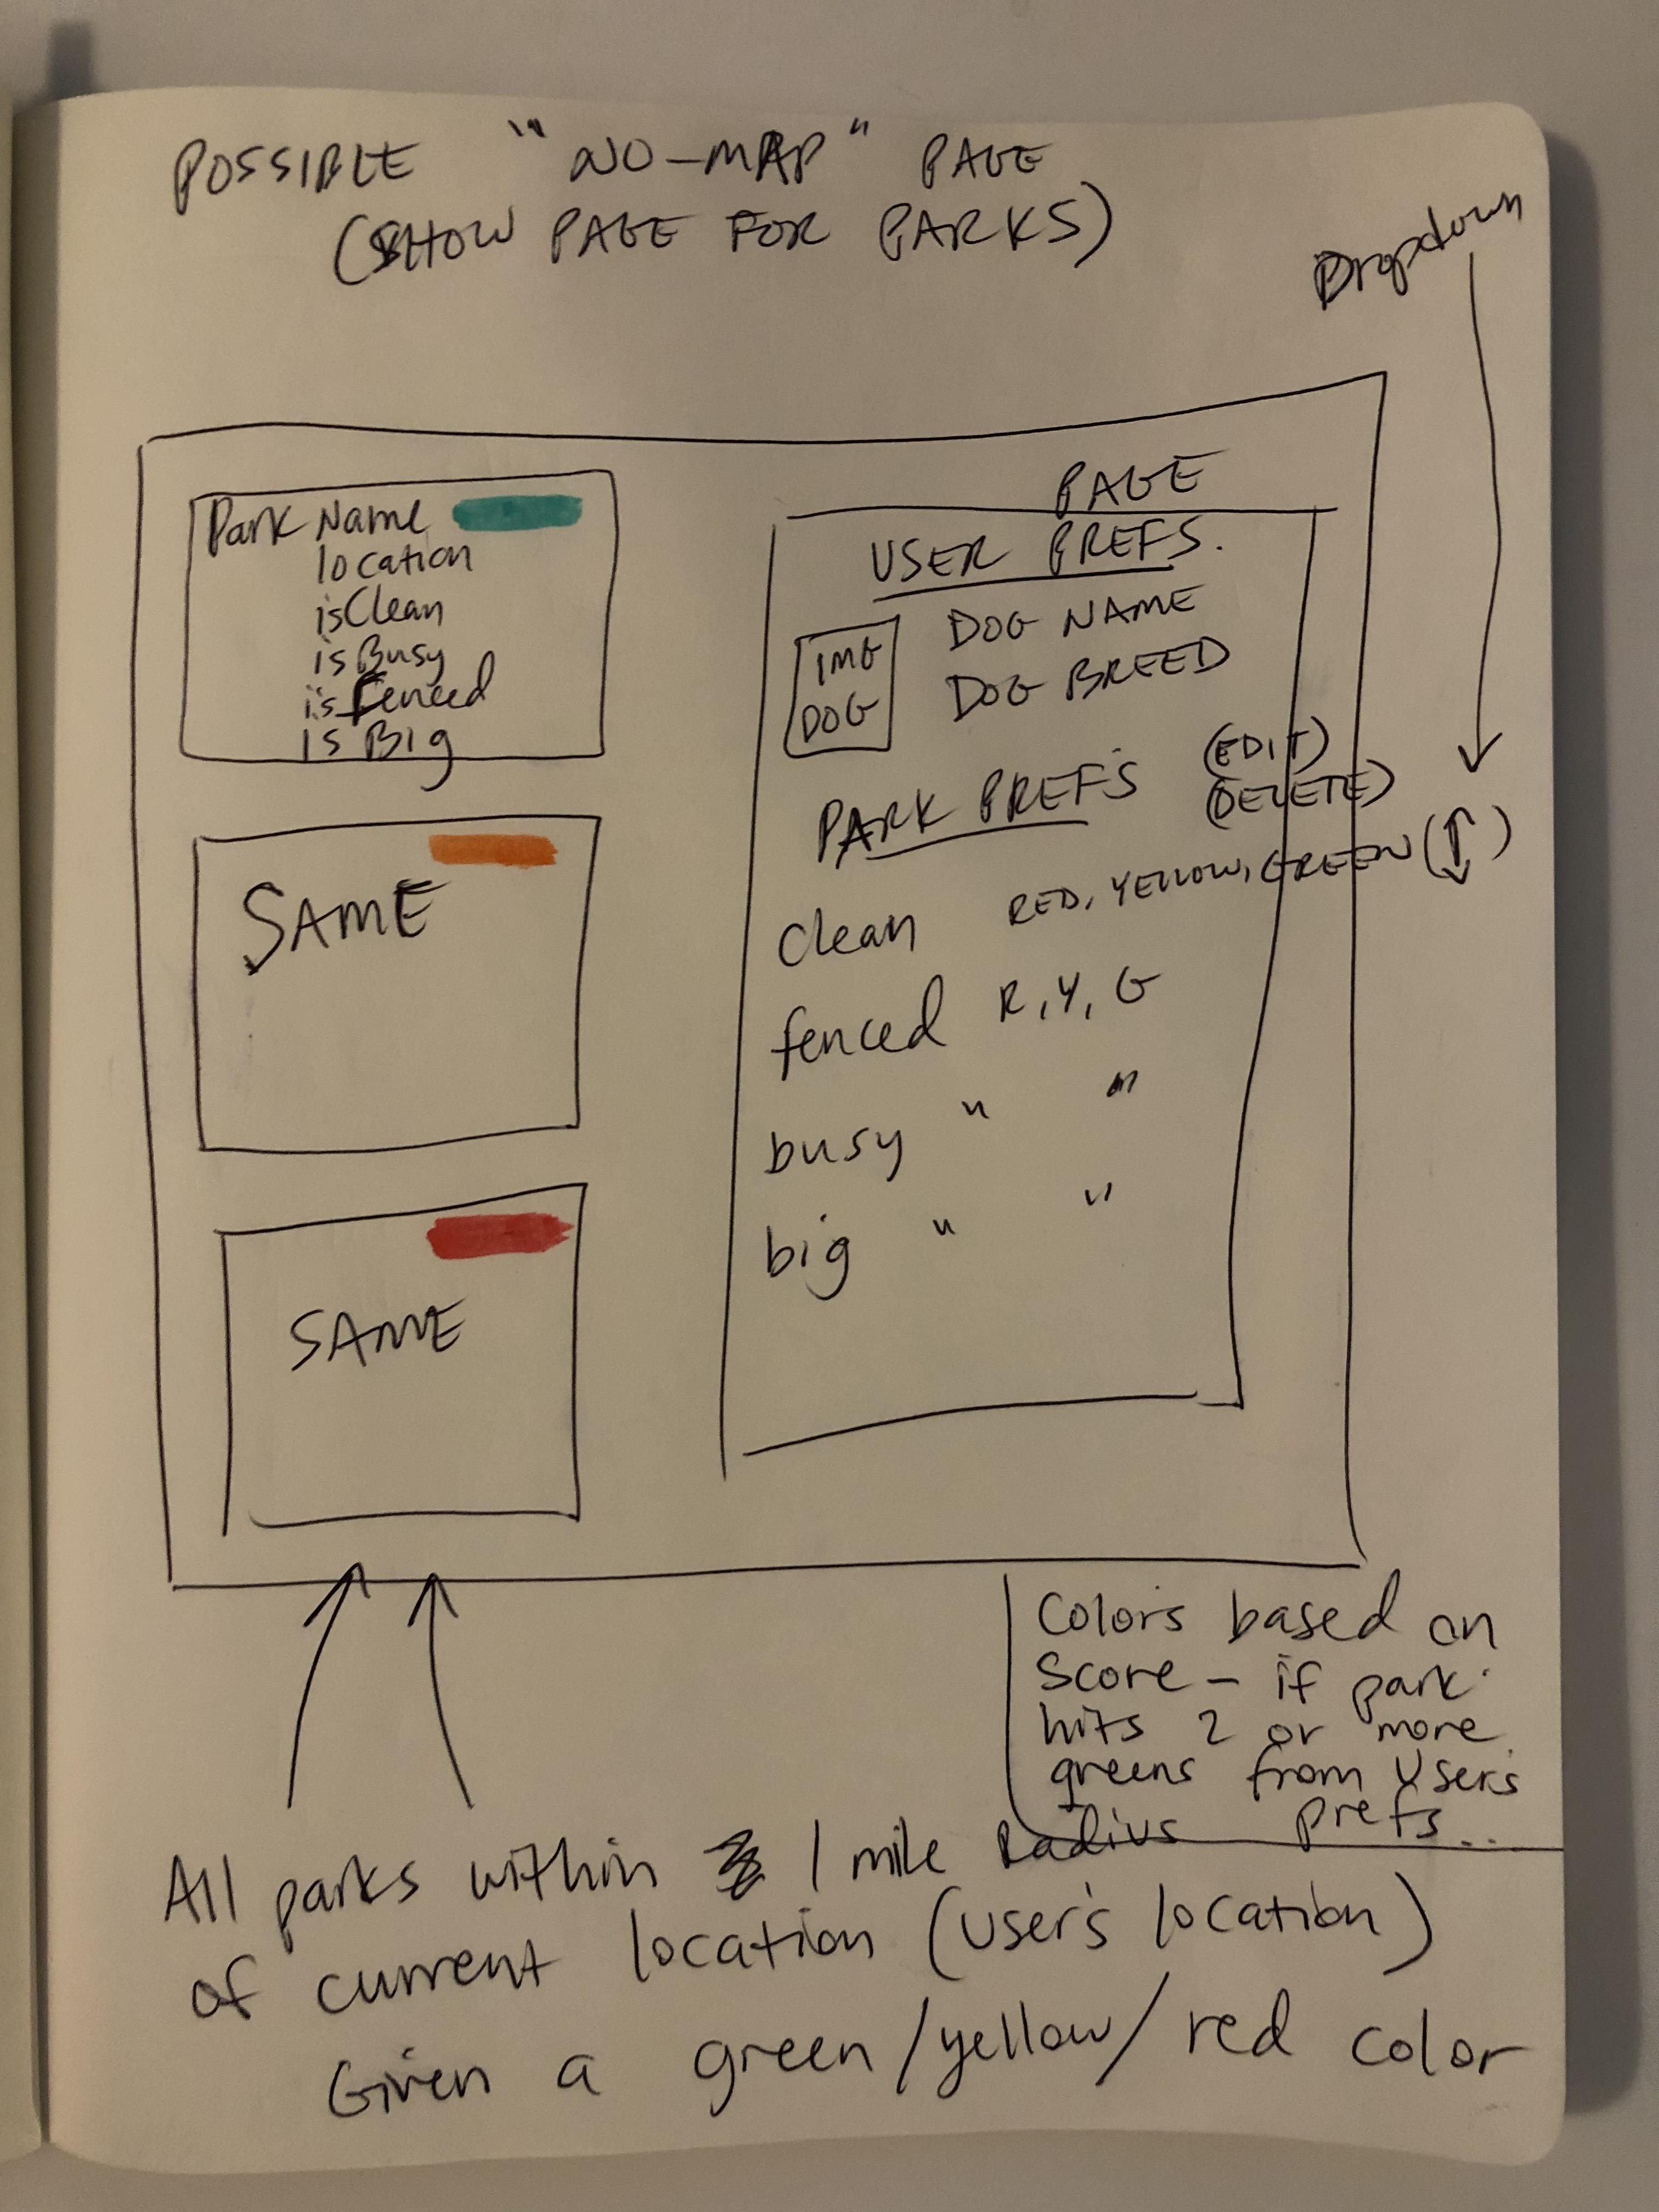 POSSIBLE "NO-MAP" PAGE
(SHOW PAGE FOR PARKS)
Dropdown
Park Name
location
isClean
isBusy
isFenced
is Big
SAME
SAME
PAGE
USER PREFS.
IMG
DOG
DOG NAME
DOG BREED
PARK PREFS
(EDIT)
(DELETE)
clean RED, YELLOW, GREEN (↕)
fenced R, Y, G
busy " "
big " "
Colors based on
Score - if park
hits 2 or more
greens from User's
prefs..
All parks within 1 mile Radius
of current location (user's location)
Given a green/yellow/red color